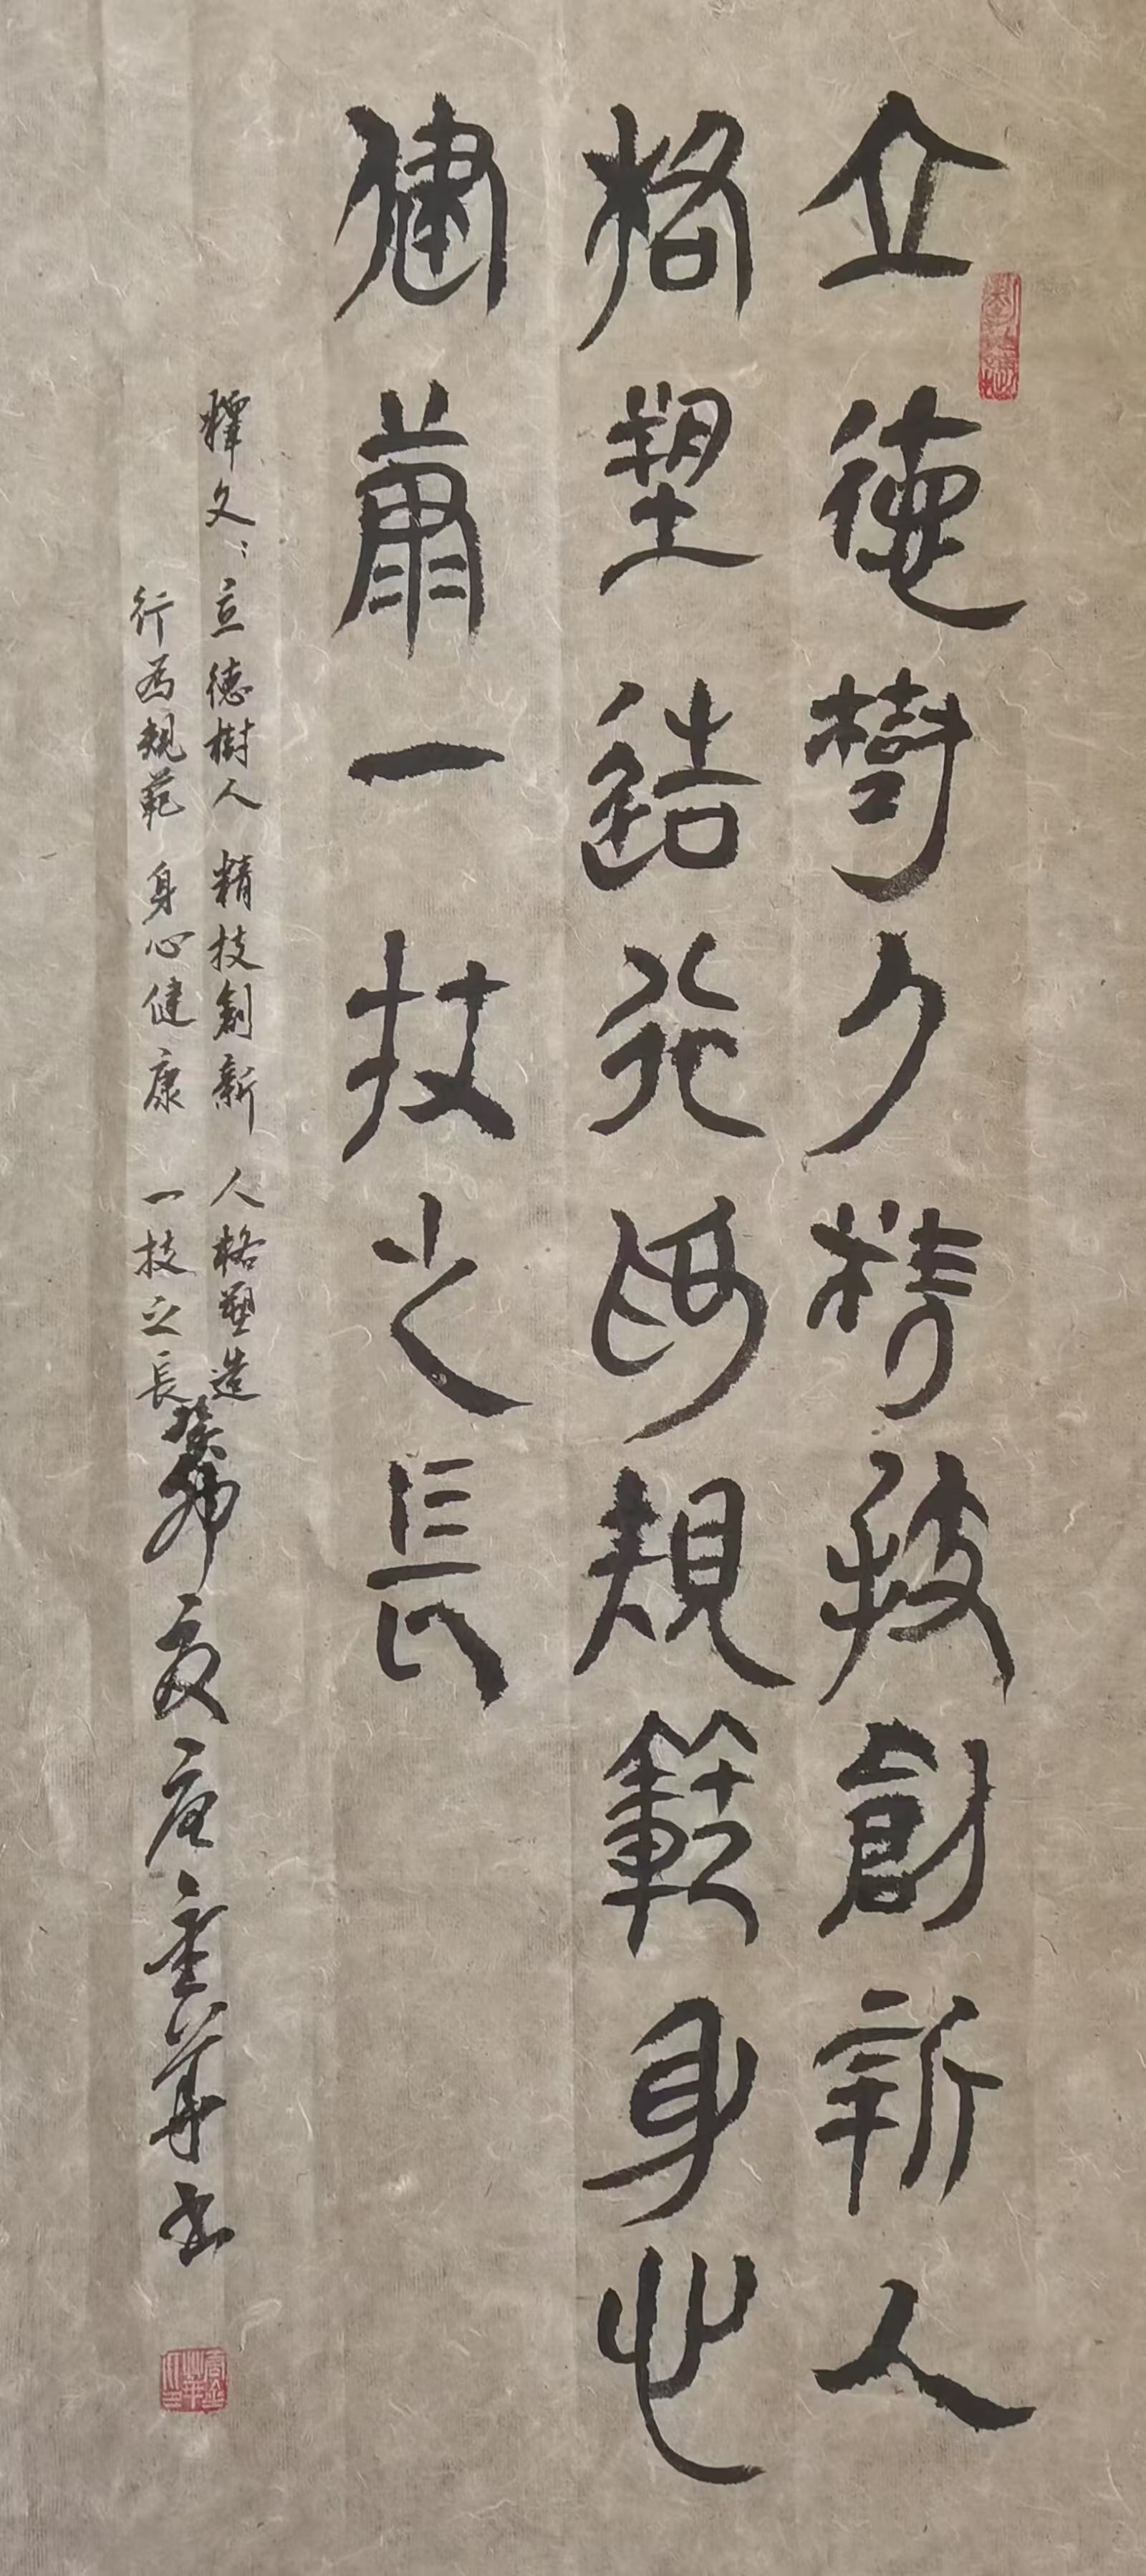 立德樹人精技創新人
格塑造行為規範身心
健康一技之長
釋文：立德樹人 精技創新 人格塑造
行為規範 身心健康 一技之長 癸卯夏 金華书